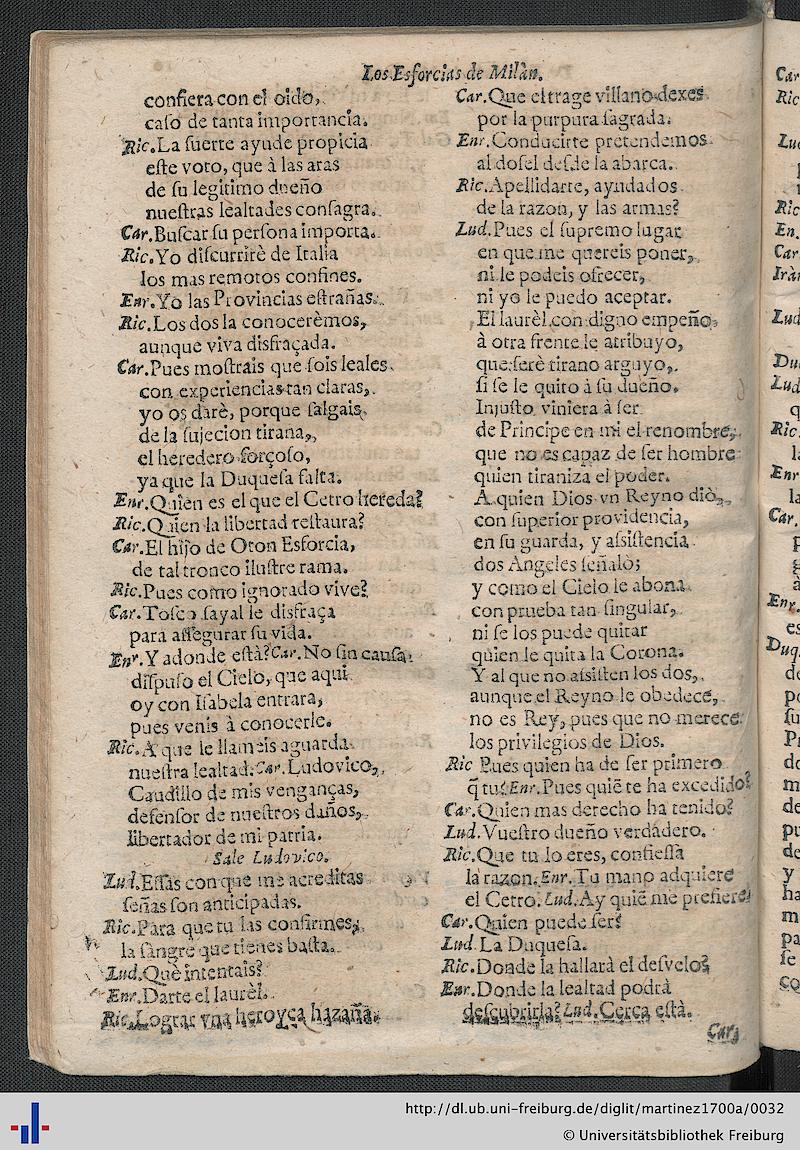 Los Esforcias de Milàn.
confiera con el oido,
caso de tanta importancia.
Ric. La suerte ayude propicia
este voto, que à las aras
de su legitimo dueño
nuestras lealtades consagra.
Car. Buscar su persona importa.
Ric. Yo discurrirè de Italia
los mas remotos confines.
Enr. Yo las Provincias estrañas.
Ric. Los dos la conocerèmos,
aunque viva disfraçada.
Car. Pues mostrais que sois leales
con experiencias tan claras,
yo os darè, porque salgais
de la sujecion tirana,
el heredero forçoso,
ya que la Duquesa falta.
Enr. Quien es el que el Cetro hereda?
Ric. Quien la libertad restaura?
Car. El hijo de Oton Esforcia,
de tal tronco ilustre rama.
Ric. Pues como ignorado vive?
Car. Tosco sayal le disfraça
para assegurar su vida.
Enr. Y adonde està? Car. No sin causa
dispuso el Cielo, que aqui
oy con Isabela entrara,
pues venis à conocerle.
Ric. A que le llameis aguarda
nuestra lealtad. Car. Ludovico,
Caudillo de mis venganças,
defensor de nuestros daños,
libertador de mi patria.
Sale Ludovico.
Lud. Essas con que me acreditas
señas son anticipadas.
Ric. Para que tu las confirmes,
la sangre que tienes basta.
Lud. Què intentais?
Enr. Darte el laurèl.
Ric. Lograr vna heroyca hazaña.
Car. Que el trage villano dexes
por la purpura sagrada.
Enr. Conducirte pretendemos
al dosel desde la abarca.
Ric. Apellidarte, ayudados
de la razon, y las armas?
Lud. Pues el supremo lugar
en que me quereis poner,
ni le podeis ofrecer,
ni yo le puedo aceptar.
El laurèl con digno empeño,
à otra frente le atribuyo,
que serè tirano arguyo,
si se le quito à su dueño.
Injusto viniera à ser
de Principe en mi el renombre,
que no es capaz de ser hombre
quien tiraniza el poder.
A quien Dios vn Reyno diò,
con superior providencia,
en su guarda, y assistencia
dos Angeles señalò;
y como el Cielo le abona
con prueba tan singular,
ni se los puede quitar
quien le quita la Corona.
Y al que no assisten los dos,
aunque el Reyno le obedece,
no es Rey, pues que no merece
los privilegios de Dios.
Ric Pues quien ha de ser primero
q̃ tu? Enr. Pues quiẽ te ha excedido?
Car. Quien mas derecho ha tenido?
Lud. Vuestro dueño verdadero.
Ric. Que tu lo eres, confiessa
la razon. Enr. Tu mano adquiere
el Cetro. Lud. Ay quiẽ me prefiere?
Car. Quien puede ser?
Lud. La Duquesa.
Ric. Donde la hallarà el desvelo?
Enr. Donde la lealtad podrà
descubrirla? Lud. Cerca està.
Car,
Car
Ric
Luc
Ric
En.
Car
Iràn
Lud
Du
Lud
q
Ric.
Enr
la
Car.
p
g
à
Enr.
es
Duq
de
po
su
Pr
do
m
de
pu
de
y
ha
m
pa
se
co
http://dl.ub.uni-freiburg.de/diglit/martinez1700a/0032
© Universitätsbibliothek Freiburg